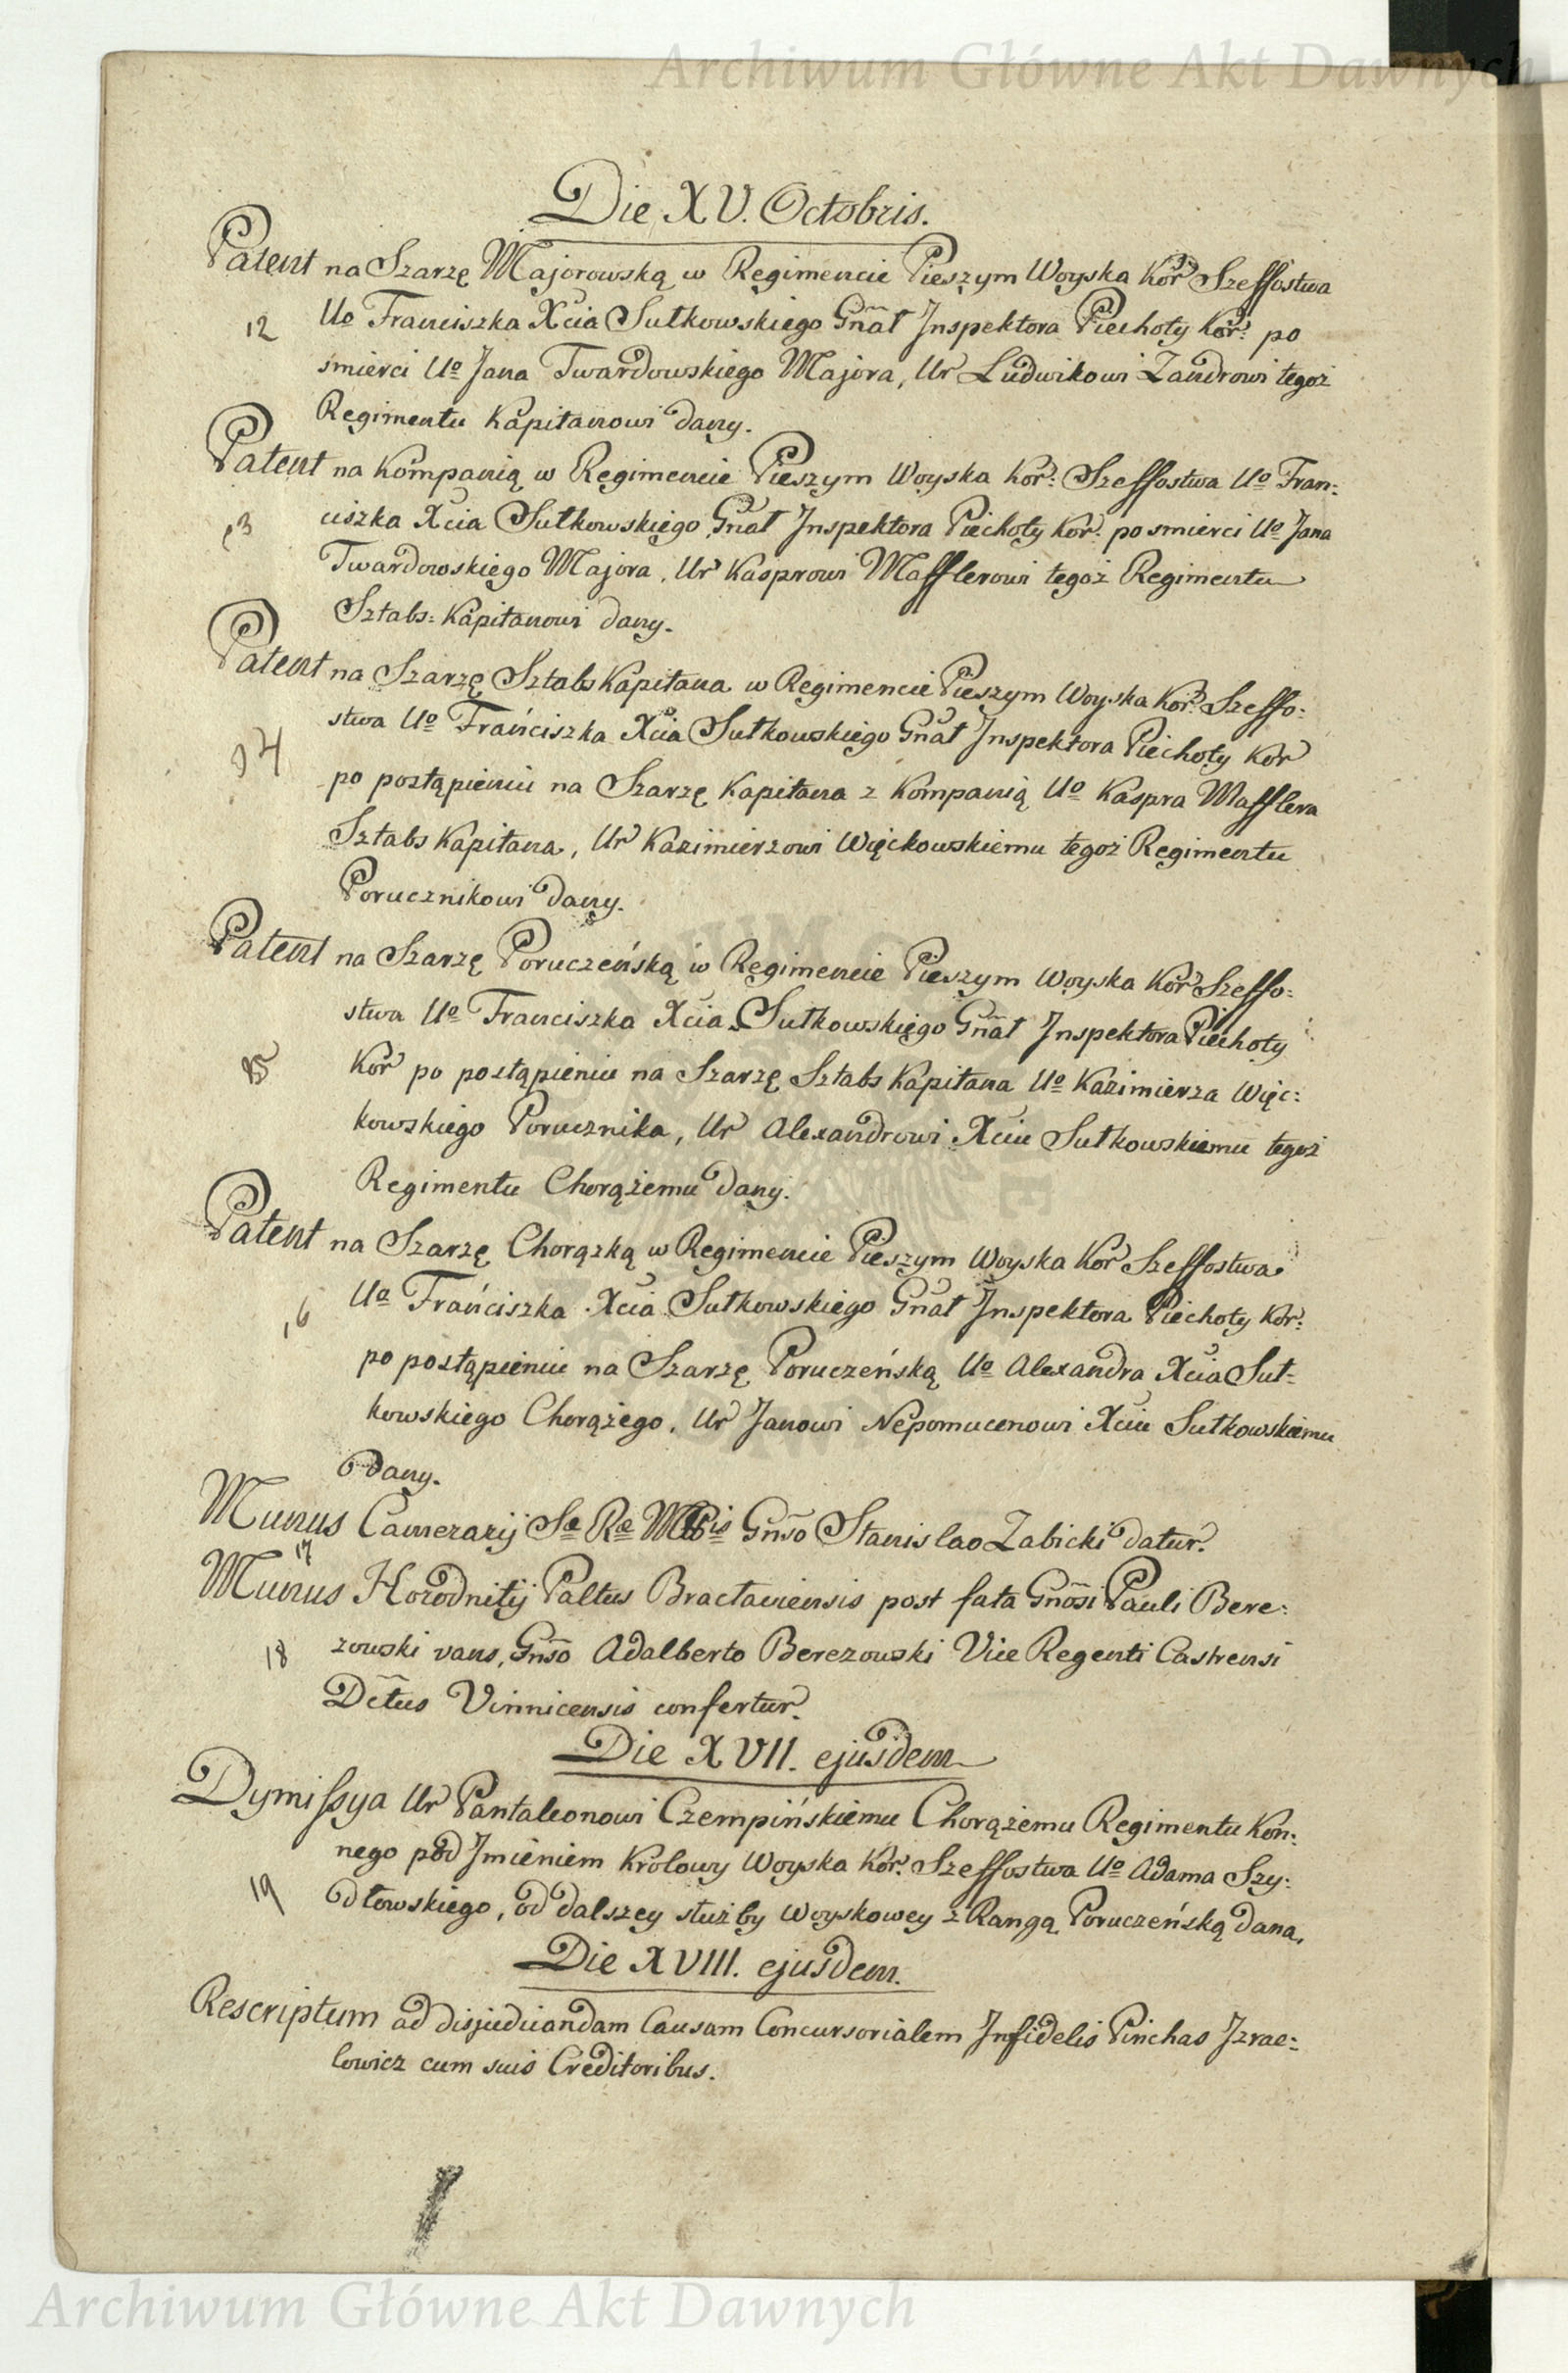 Archiwum Główne Akt Dawnych
Die XV. Octobris.
Patent na Szarzę Majorowską w Regimencie Pieszym Woyska Kor Szeffostwa
12 Uo Franciszka Xcia Sułkowskiego Gnał Inspektora Piechoty Kor: po
smierci Uo Jana Twardowskiego Majora, Ur Ludwikowi Zandrowi tegoż
Regimentu Kapitanowi dany.
Patent na Kompanią w Regimencie Pieszym Woyska Kor: Szeffostwa Uo Fran:
13 ciszka Xcia Sułkowskiego Gnał Inspektora Piechoty Kor: po smierci Uo Jana
Twardowskiego Majora, Ur Kasprowi Mafflerowi tegoż Regimentu
Sztabs: Kapitanowi dany.
Patent na Szarzę Sztabs Kapitana w Regimencie Pieszym Woyska Kor: Szeffo:
14 stwa Uo Frańciszka Xcia Sułkowskiego Gnał Inspektora Piechoty Kor
po postąpieniu na Szarzę Kapitana z Kompanią Uo Kaspra Mafflera
Sztabs Kapitana, Ur Kazimierzowi Więckowskiemu tegoż Regimentu
Porucznikowi dany.
Patent na Szarzę Poruczeńską w Regimencie Pieszym Woyska Kor Szeffo:
stwa Uo Franciszka Xcia Sułkowskiego Gnał Inspektora Piechoty
15 Kor po postąpieniu na Szarzę Sztabs Kapitana Uo Kazimierza Więc:
kowskiego Porucznika, Ur Alexandrowi Xciu Sułkowskiemu tegoż
Regimentu Chorążemu dany.
Patent na Szarzę Chorązką w Regimencie Pieszym Woyska Kor Szeffostwa
16 Uo Frańciszka Xcia Sułkowskiego Gnał Inspektora Piechoty Kor:
po postąpieniu na Szarzę Poruczeńską Uo Alexandra Xcia Suł-
kowskiego Chorążego, Ur Janowi Nepomucenowi Xciu Sułkowskiemu
dany.
Munus Camerarij Sæ Ræ Mtis Gnso Stanislao Zabicki datur.
17
Munus Horodnitij Paltus Braclaviensis post fata Gnosi Pauli Bere:
18 zowski vans, Gnso Adalberto Berezowski Vice Regenti Castrensi
Dctus Vinnicensis confertur.
Die XVII. ejusdem
Dymissya Ur Pantaleonowi Czempińskiemu Chorążemu Regimentu Kon:
nego pod Imieniem Krolowy Woyska Kor: Szeffostwa Uo Adama Szy:
19 dłowskiego, od dalszey służby Woyskowey z Rangą Poruczeńską dana.
Die XVIII. ejusdem.
Rescriptum ad disjudicandam Causam Concursorialem Infidelis Pinchas Izrae:
lowicz cum suis Creditoribus.
Archiwum Główne Akt Dawnych